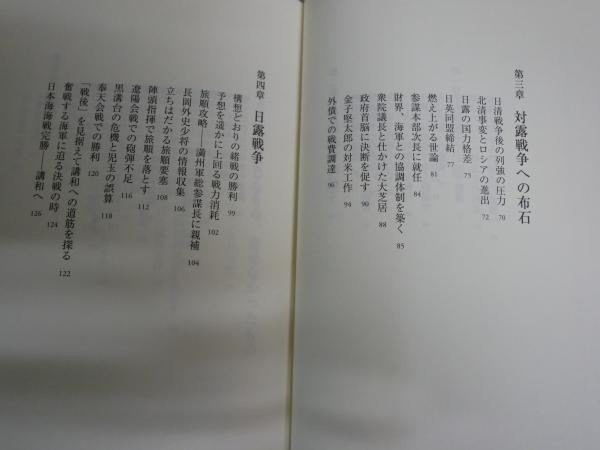 第三章 対露戦争への布石
日清戦争後の列強の圧力 70
北清事変とロシアの進出 72
日露の国力格差 75
日英同盟締結 77
燃え上がる世論 81
参謀本部次長に就任 84
財界、海軍との協調体制を築く 85
衆院議長と仕かけた大芝居 88
政府首脳に決断を促す 90
金子堅太郎の対米工作 94
外債での戦費調達 96
第四章 日露戦争
構想どおりの緒戦の勝利 99
予想を遥かに上回る戦力消耗 102
旅順攻略――満州軍総参謀長に親補 104
長岡外史少将の情報収集 106
立ちはだかる旅順要塞 108
陣頭指揮で旅順を落とす 112
遼陽会戦での砲弾不足 116
黒溝台の危機と児玉の誤算 118
奉天会戦での勝利 120
「戦後」を見据えて講和への道筋を探る 122
奮戦する海軍に迫る決戦の時 124
日本海海戦完勝――講和へ 126